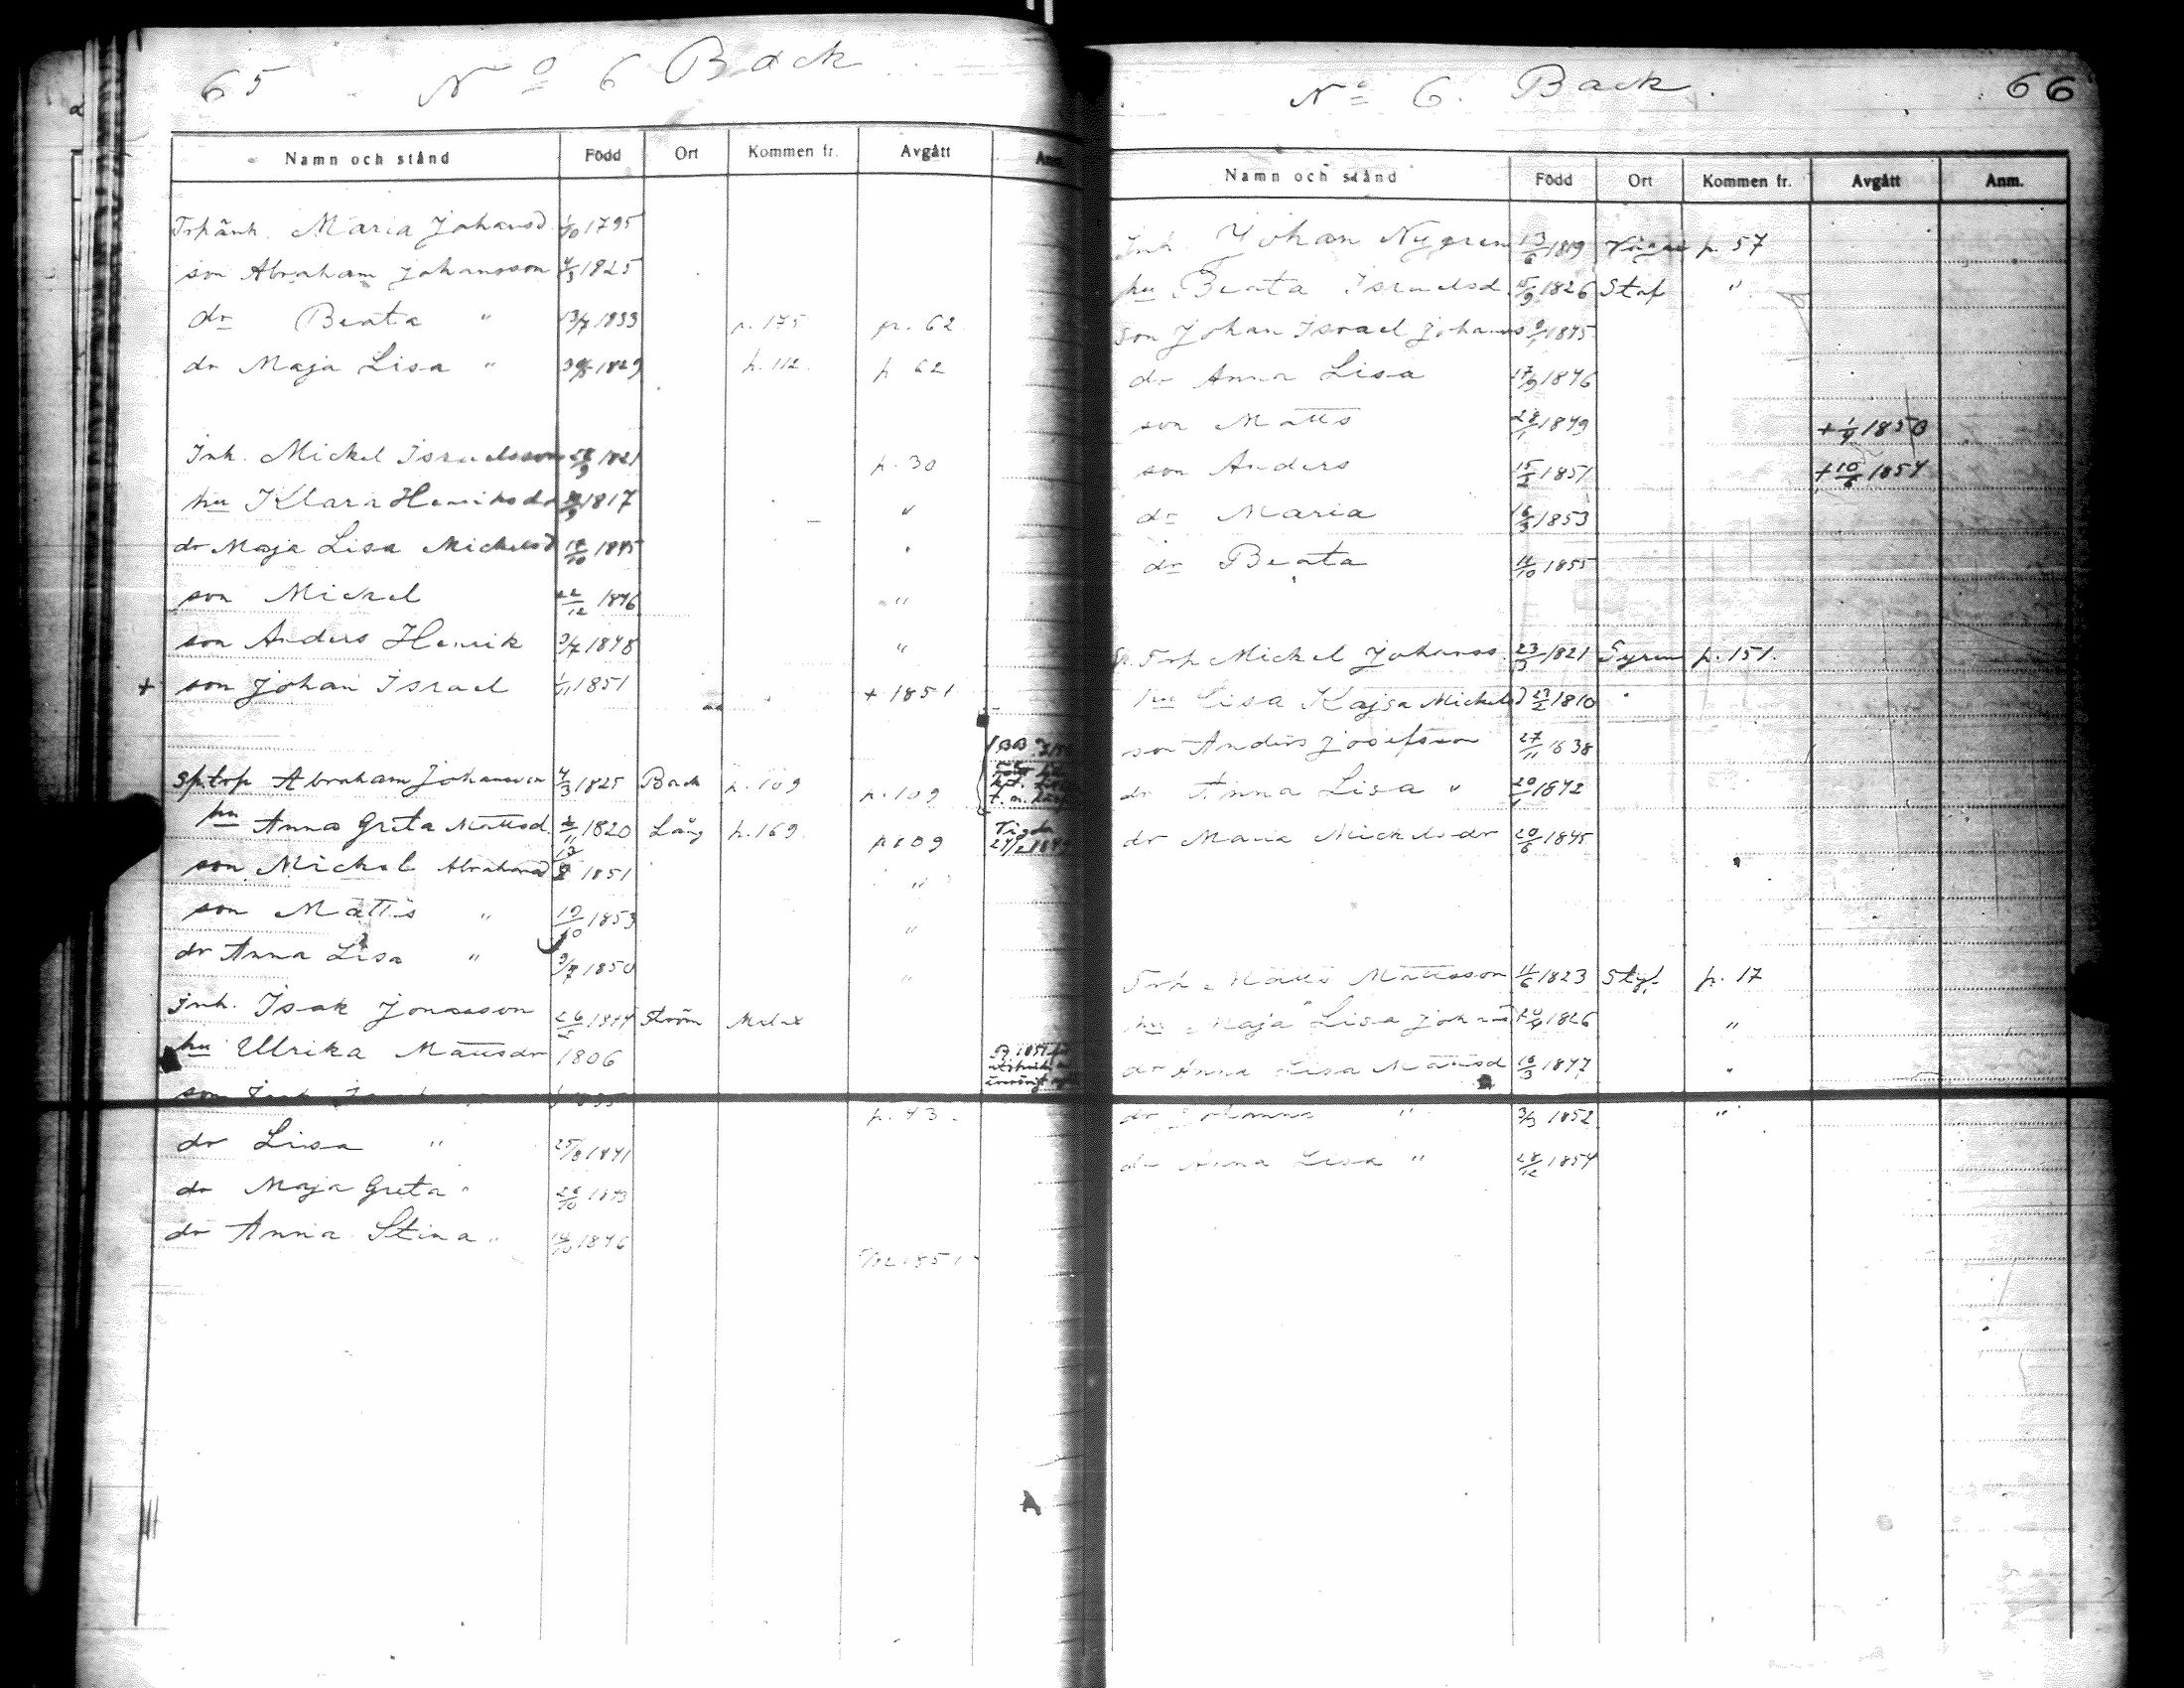 65 No 6 Back
Namn och stånd Född Ort Kommen fr. Avgått Anm.
Trpänk. Maria Johansd. 1/10 1795
son Abraham Johansson 4/3 1825
dr Beata " 13/7 1833 p. 175 p. 62
dr Maja Lisa " 1829 p. 112 p 62
Inh. Mickel Israelsson 1821 p. 30
hu Klara Henriksdr 1817 "
dr Maja Lisa Mickelsd 1845 "
son Mickel 22/12 1846 "
son Anders Henrik 3/7 1848 "
+ son Johan Israel 1/11 1851 + 1851
sp.trp Abraham Johansson 4/3 1825 Back p. 109 p. 109
hu Anna Greta Mattsd. 1820 Lång p. 169 p 109 Vigda
son Mickel Abrahamss 1851 "
son Matts " 10/10 1853 "
dr Anna Lisa " 9/7 1850 "
Inh. Isak Jonasson 1814 Ström Malax
hu Ulrika Mattsdr 1806
son p. 43.
dr Lisa " 25/8 1841
dr Maja Greta " 26/10 1843
dr Anna Stina " 14/10 1846
1851
No 6. Back. 66
Namn och stånd Född Ort Kommen fr. Avgått Anm.
Inh. Johan Nygren 13/6 1819 p. 57
hu Beata Israelsd. 15/9 1826 Staf "
son Johan Israel Johanss 1845
dr Anna Lisa 17/9 1846
son Matts 28/1 1849 + 1/9 1850
son Anders 15/2 1851 + 10/6 1854
dr Maria 16/3 1853
dr Beata 1855
Sp. Trp Mickel Johanss. 23/3 1821 p. 151.
hu Lisa Kajsa Mickelsd 23/2 1810 "
son Anders Josefsson 27/11 1838
dr Anna Lisa " 20/1 1842
dr Maria Mickelsdr 20/6 1845
Trp Matts Mattsson 1823 p. 17
hu Maja Lisa Johansd 1826 "
dr Anna Lisa Mattsd 18/3 1847 "
dr Johanna " 3/3 1852 "
dr Anna Lisa " 28/12 1854